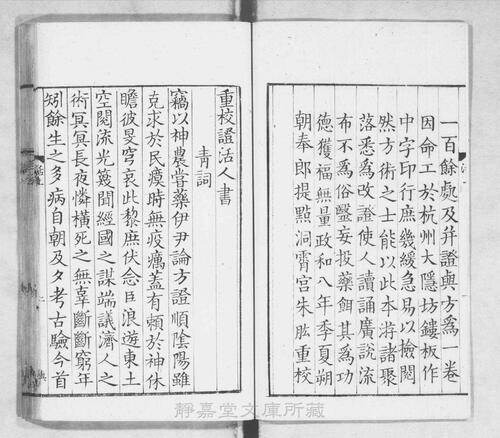 一百餘處及并證與方爲一卷
因命工於杭州大隱坊鏤板作
中字印行庶幾緩急易以檢閱
然方術之士能以此本將諸聚
落悉爲改證使人讀誦廣說流
布不爲俗毉妄投藥餌其爲功
德獲福無量政和八年季夏朔
朝奉郎提點洞霄宮朱肱重校
重校證活人書
青詞
竊以神農嘗藥伊尹論方證順陰陽雖
克求於民瘼時無疫癘蓋有賴於神休
瞻彼旻穹哀此黎庶伏念臣浪遊東土
空閱流光篾聞經國之謀端議濟人之
術冥冥長夜憐橫死之無辜斷斷窮年
矧餘生之多病自朝及夕考古驗今首
靜嘉堂文庫所藏